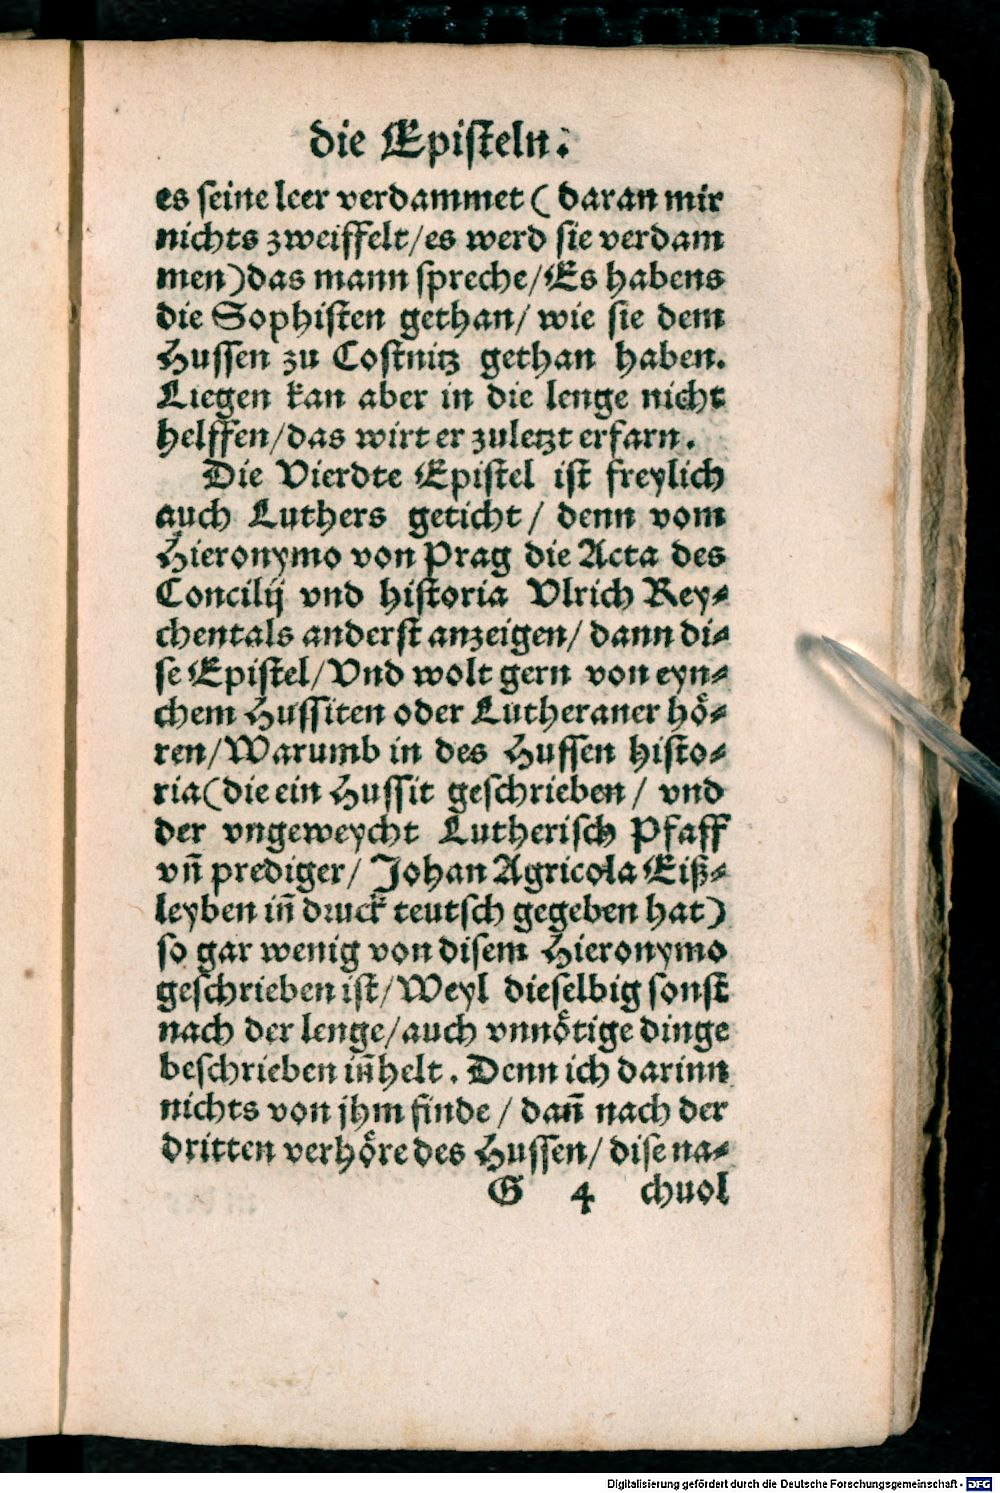 die Episteln.
es seine leer verdammet ( daran mir
nichts zweiffelt/es werd sie verdam
men)das mann spreche/Es habens
die Sophisten gethan/ wie sie dem
Hussen zu Costnitz gethan haben.
Liegen kan aber in die lenge nicht
helffen/das wirt er zuletzt erfarn.
Die Vierdte Epistel ist freylich
auch Luthers geticht/ denn vom
Hieronymo von Prag die Acta des
Concilij vnd historia Vlrich Rey⸗
chentals anderst anzeigen/ dann di⸗
se Epistel/Vnd wolt gern von eyn⸗
chem Hussiten oder Lutheraner hoͤ⸗
ren/Warumb in des Hussen histo⸗
ria(die ein Hussit geschrieben/ vnd
der vngeweycht Lutherisch Pfaff
vn̄ prediger/ Johan Agricola Eiß⸗
leyben in̄ druck teutsch gegeben hat)
so gar wenig von disem Hieronymo
geschrieben ist/Weyl dieselbig sonst
nach der lenge/auch vnnoͤtige dinge
beschrieben in̄helt. Denn ich darinn
nichts von jhm finde/ dan̄ nach der
dritten verhoͤre des Hussen/ dise na⸗
G 4 chuol
Digitalisierung gefördert durch die Deutsche Forschungsgemeinschaft - DFG